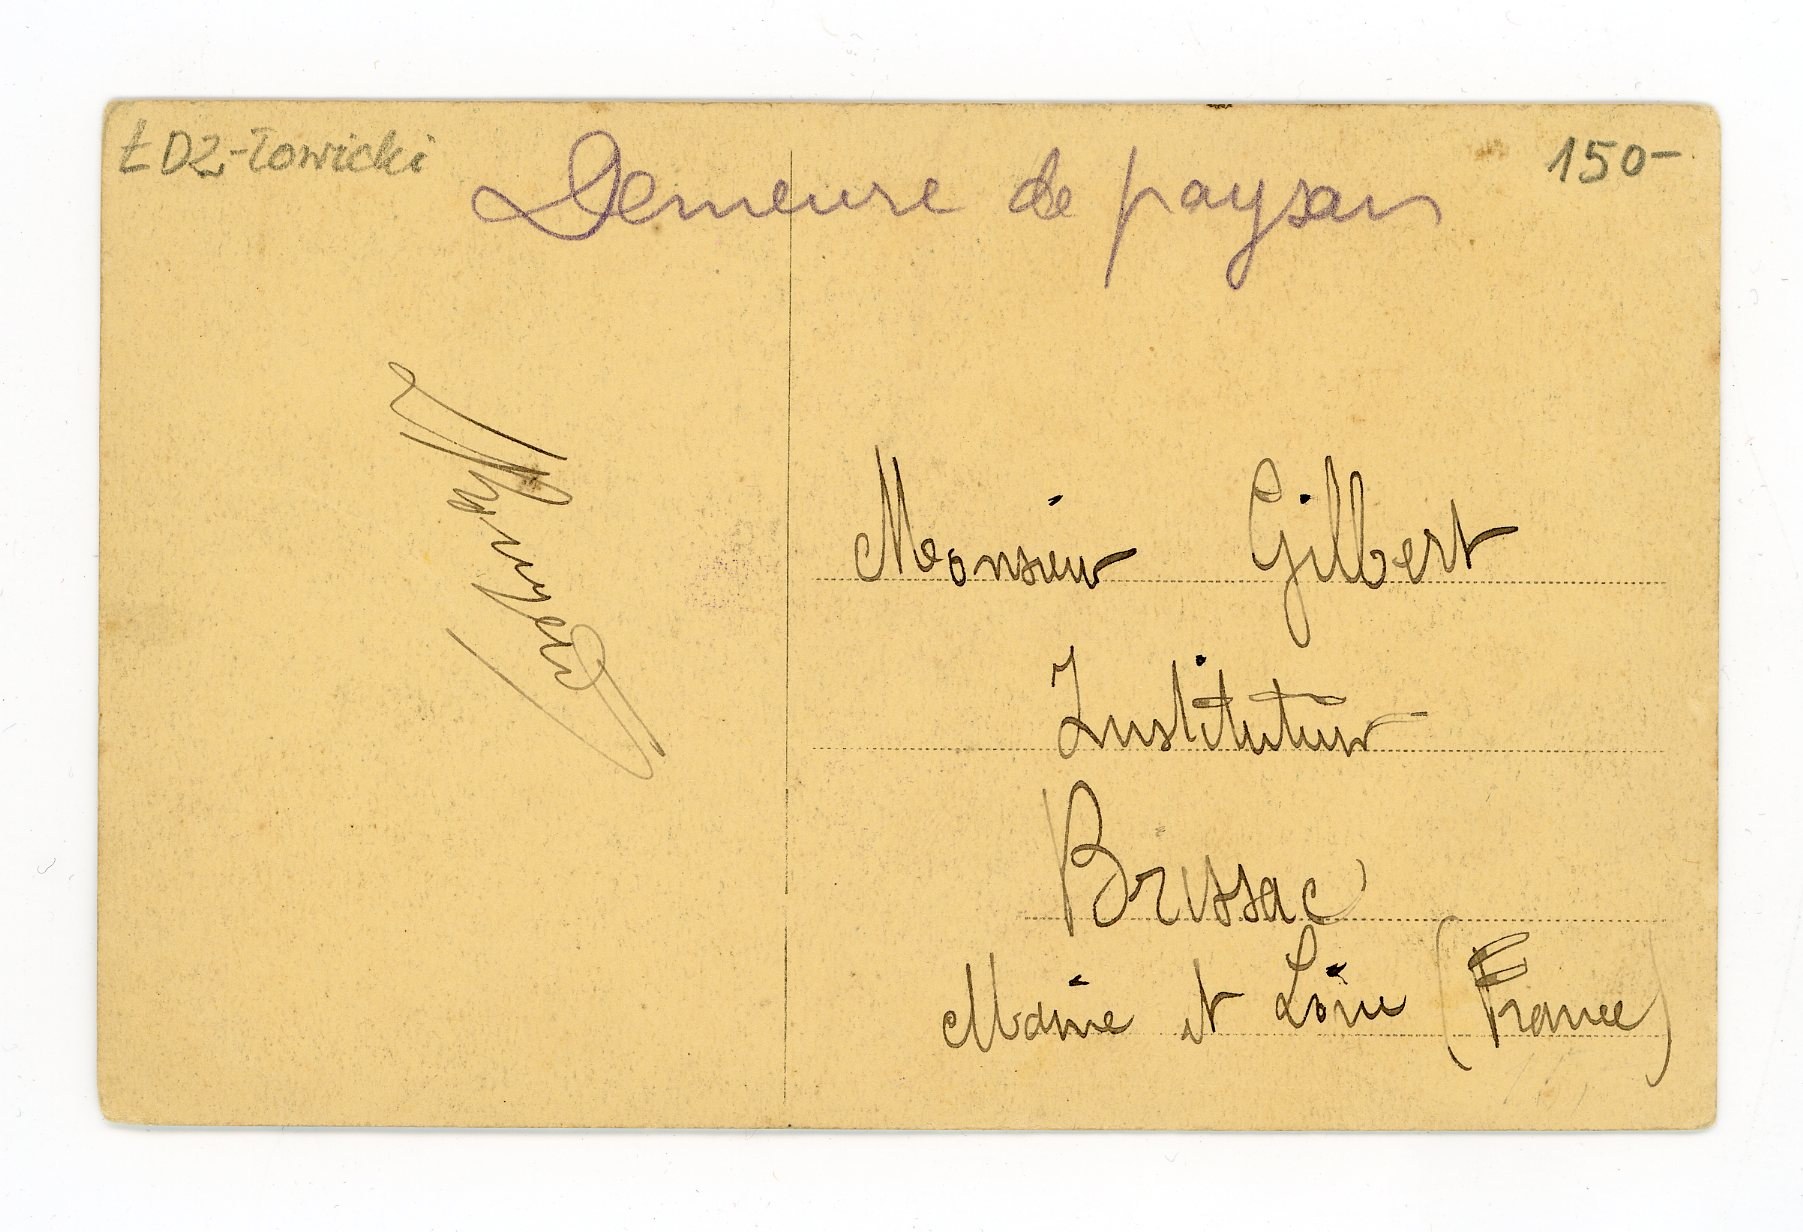 ŁDZ-łowicki
150-
Demeure de paysan
Monsieur Gilbert
Instituteur
Brissac
Maine et Loire (France)